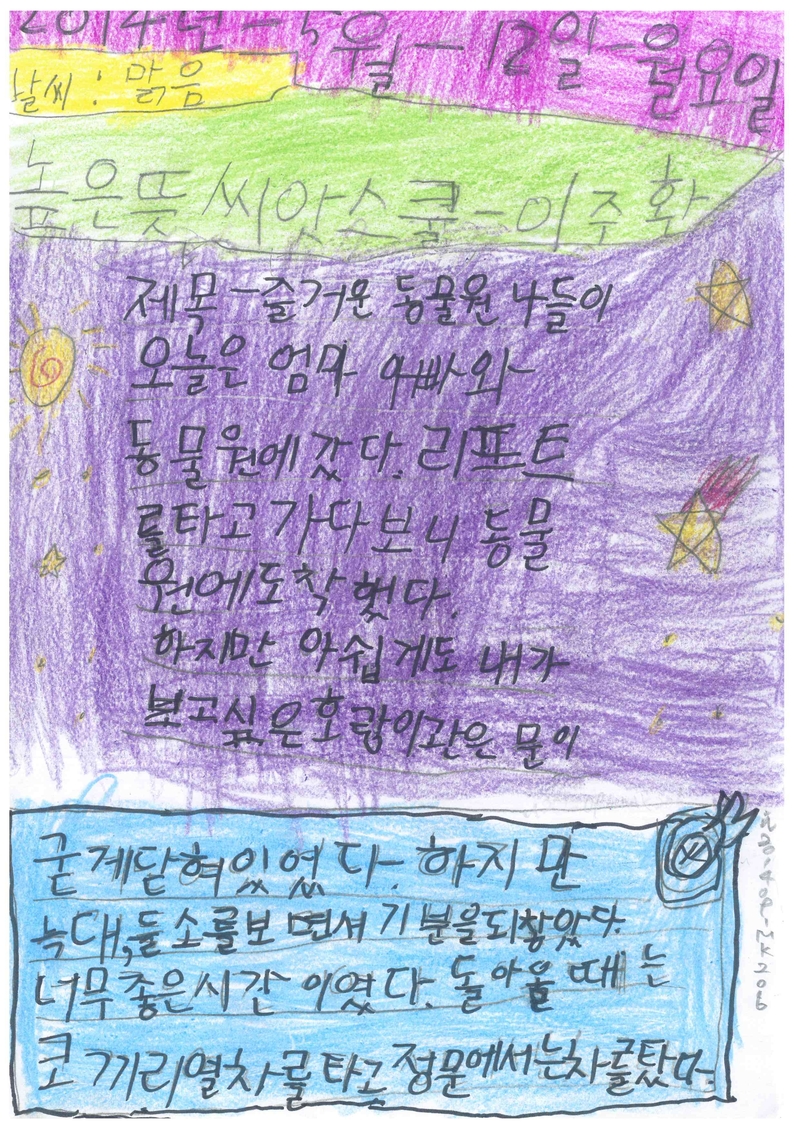 2014년-5월-12일-월요일
날씨 : 맑음
높은뜻 씨앗스쿨-이주환
제목-즐거운 동물원 나들이
오늘은 엄마 아빠와
동물원에 갔다. 리프트
를타고 가다보니 동물
원에도착 했다.
하지만 아쉽게도 내가
보고싶은호랑이관은 문이
굳게닫혀있었다. 하지만
늑대,들소를보면서 기분을되찾았다.
너무좋은시간 이였다. 돌아올때는
코끼리열차를타고정문에서는차를탔다.